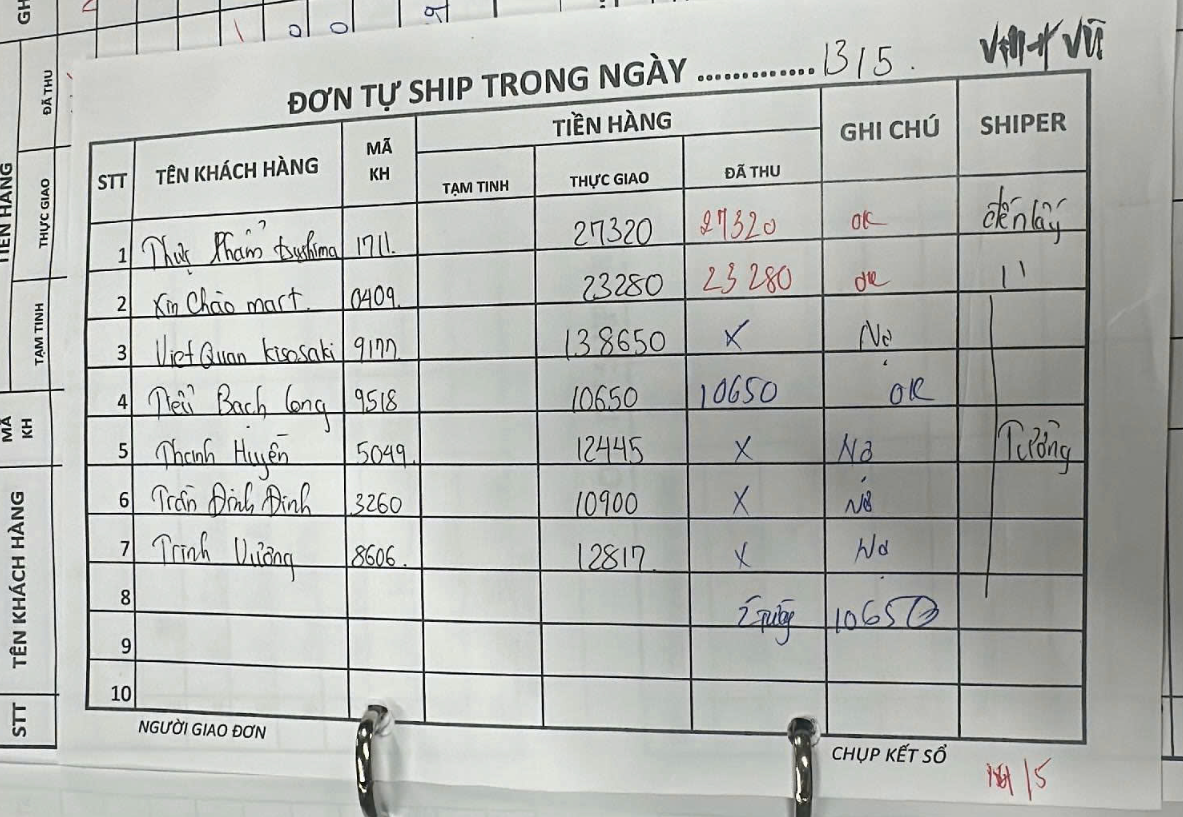 ĐƠN TỰ SHIP TRONG NGÀY ............. 13/5.
STT TÊN KHÁCH HÀNG MÃ KH TIỀN HÀNG GHI CHÚ SHIPER
TẠM TINH THỰC GIAO ĐÃ THU
1 Thực Phẩm tsushima 1711. 27320 27320 OK đến lấy
2 Xin Chào mart. 0409. 23280 23280 OK 11
3 Việt Quan kisosaki 9177. 138650 X Nợ
4 Tiểu Bạch Long 9518 10650 10650 OK
5 Thanh Huyền 5049. 12445 X Nợ Tường
6 Trần Đình Đình 3260 10900 X Nợ
7 Trịnh Vương 8606. 12817. X Nợ
8 10650
9
10
NGƯỜI GIAO ĐƠN
CHỤP KẾT SỔ
/5
GH
1 0 0
TIỀN HÀNG
ĐÃ THU
THỰC GIAO
TẠM TINH
MÃ KH
TÊN KHÁCH HÀNG
STT